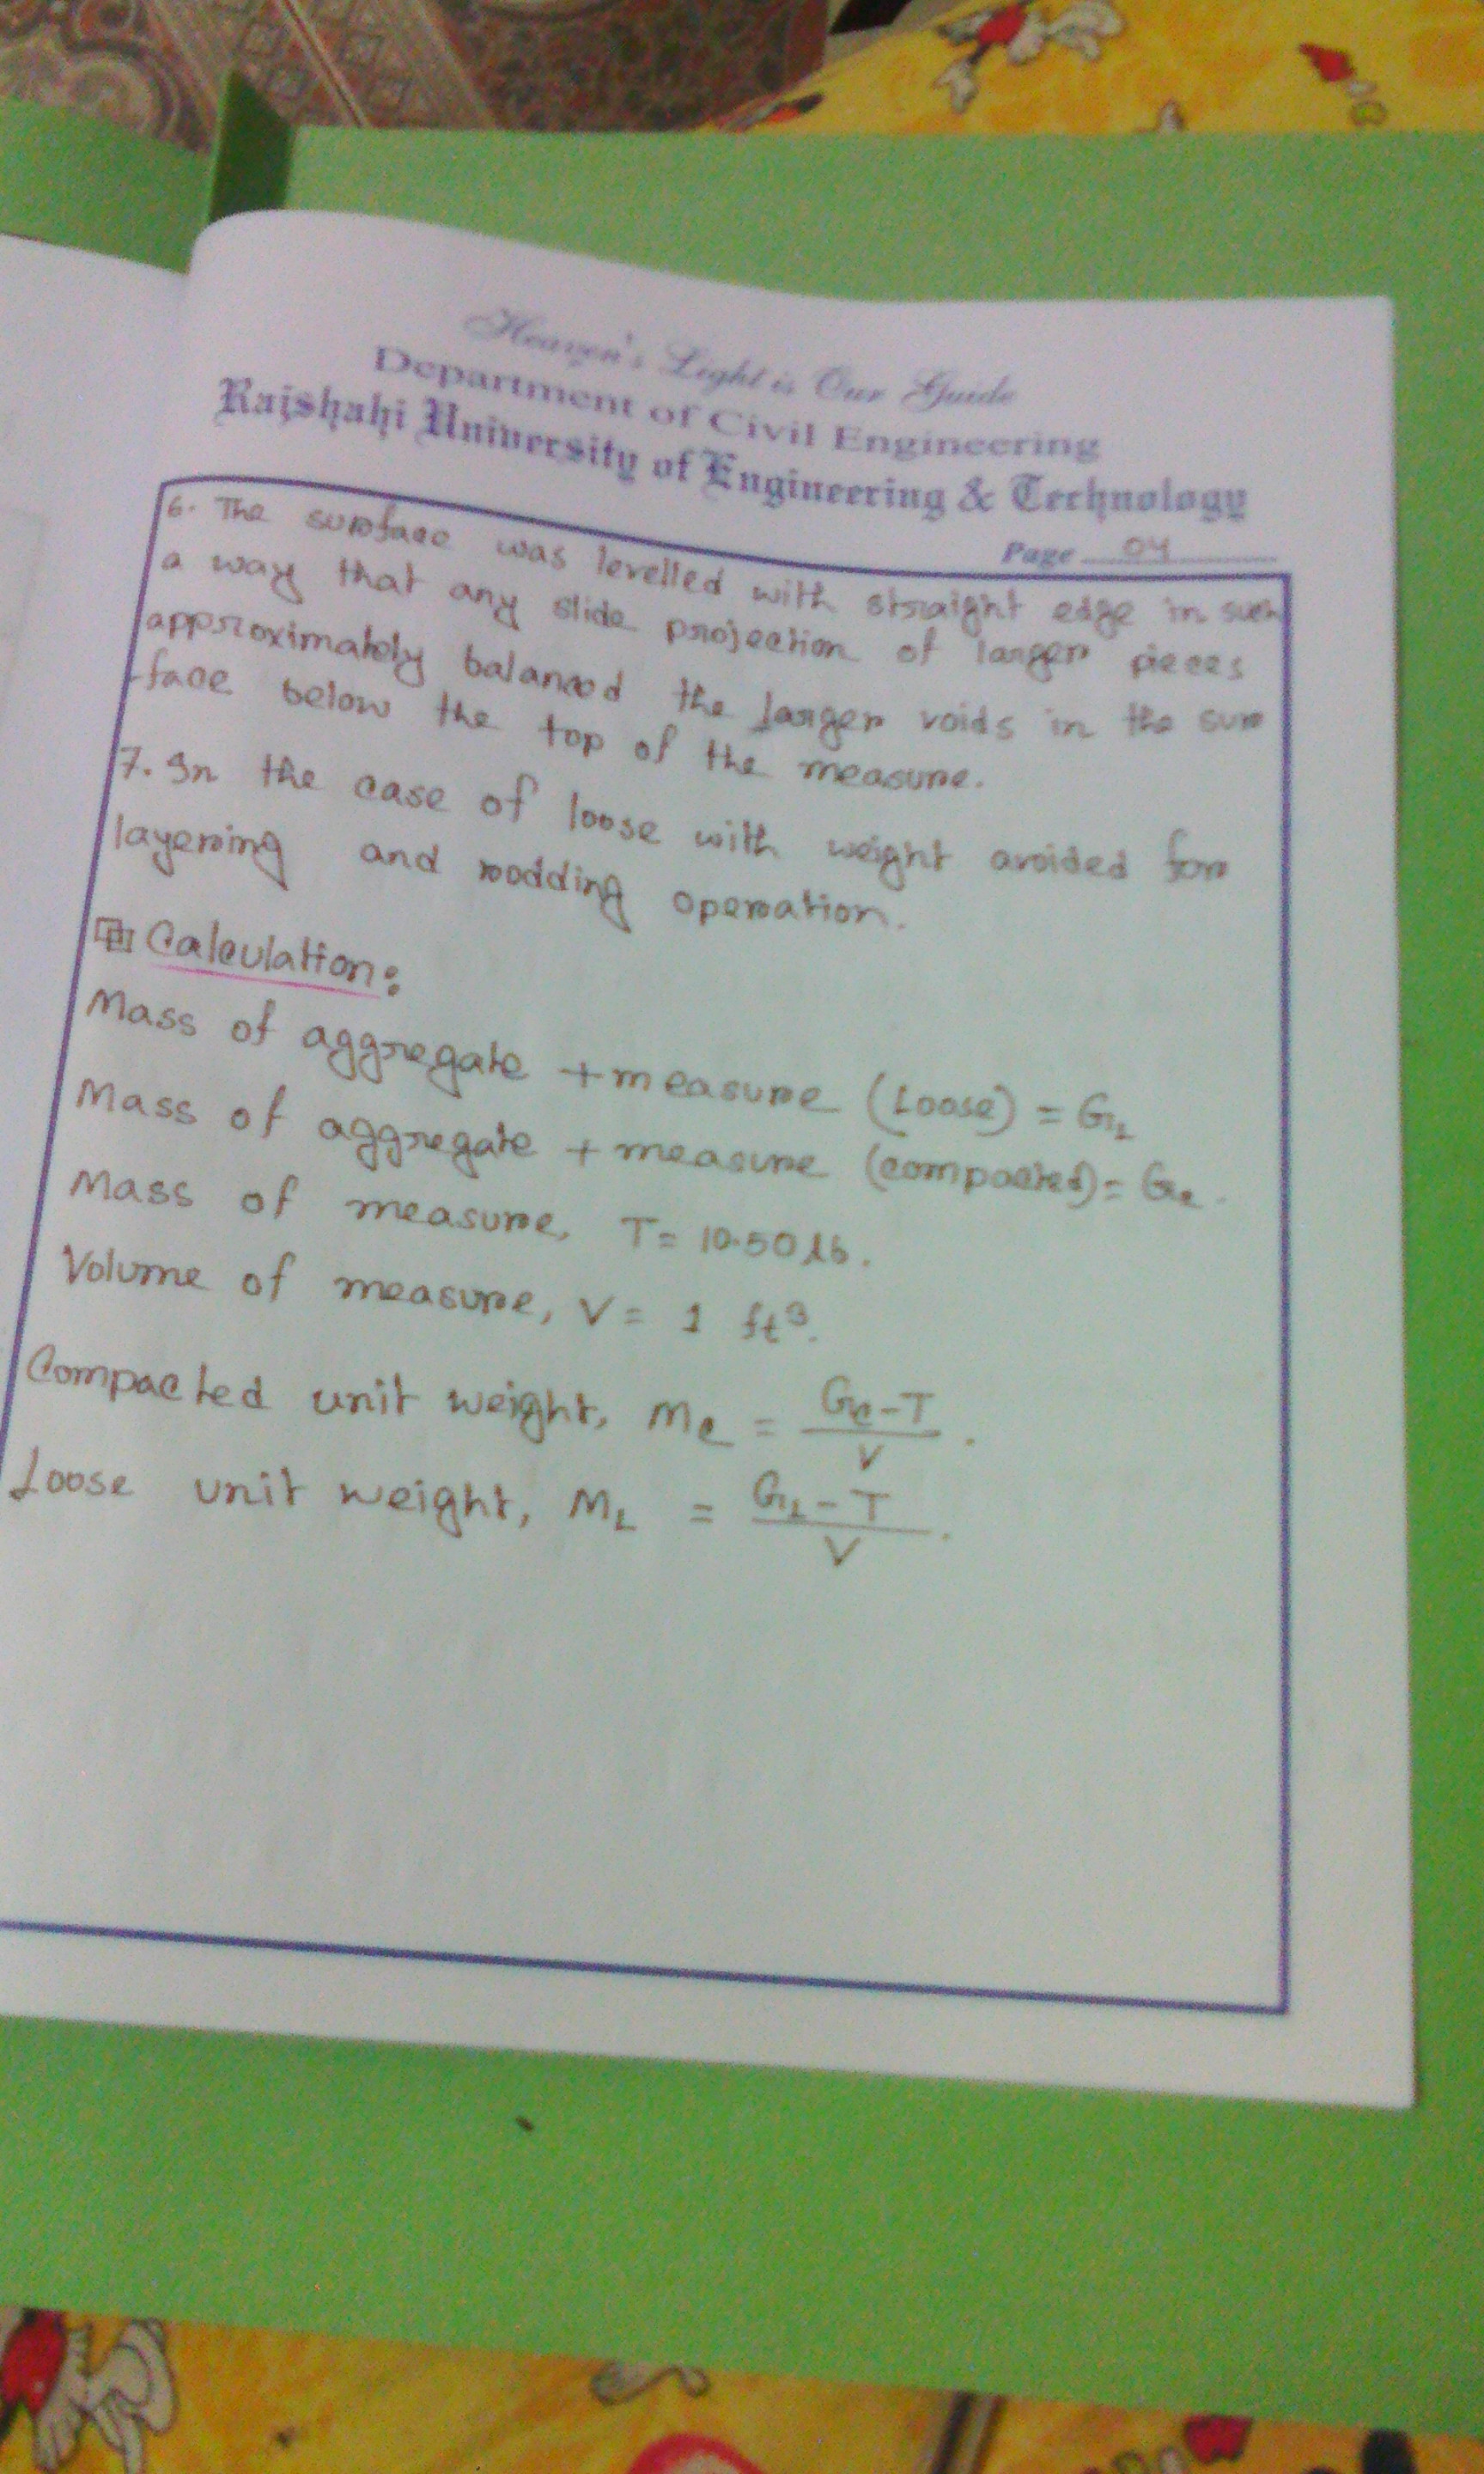 Heaven's Light is Our Guide
Department of Civil Engineering
Rajshahi University of Engineering & Technology
Page 04
6. The surface was levelled with straight edge in such
a way that any slide projection of larger pieces
approximately balanced the larger voids in the sur
face below the top of the measure.
7. In the case of loose with weight avoided for
layering and rodding operation.
Calculation:
Mass of aggregate + measure (Loose) = G_L
Mass of aggregate + measure (compacted) = G_c.
Mass of measure, T = 10.50 lb.
Volume of measure, V = 1 ft³.
Compacted unit weight, M_c = (G_c - T) / V.
Loose unit weight, M_L = (G_L - T) / V.